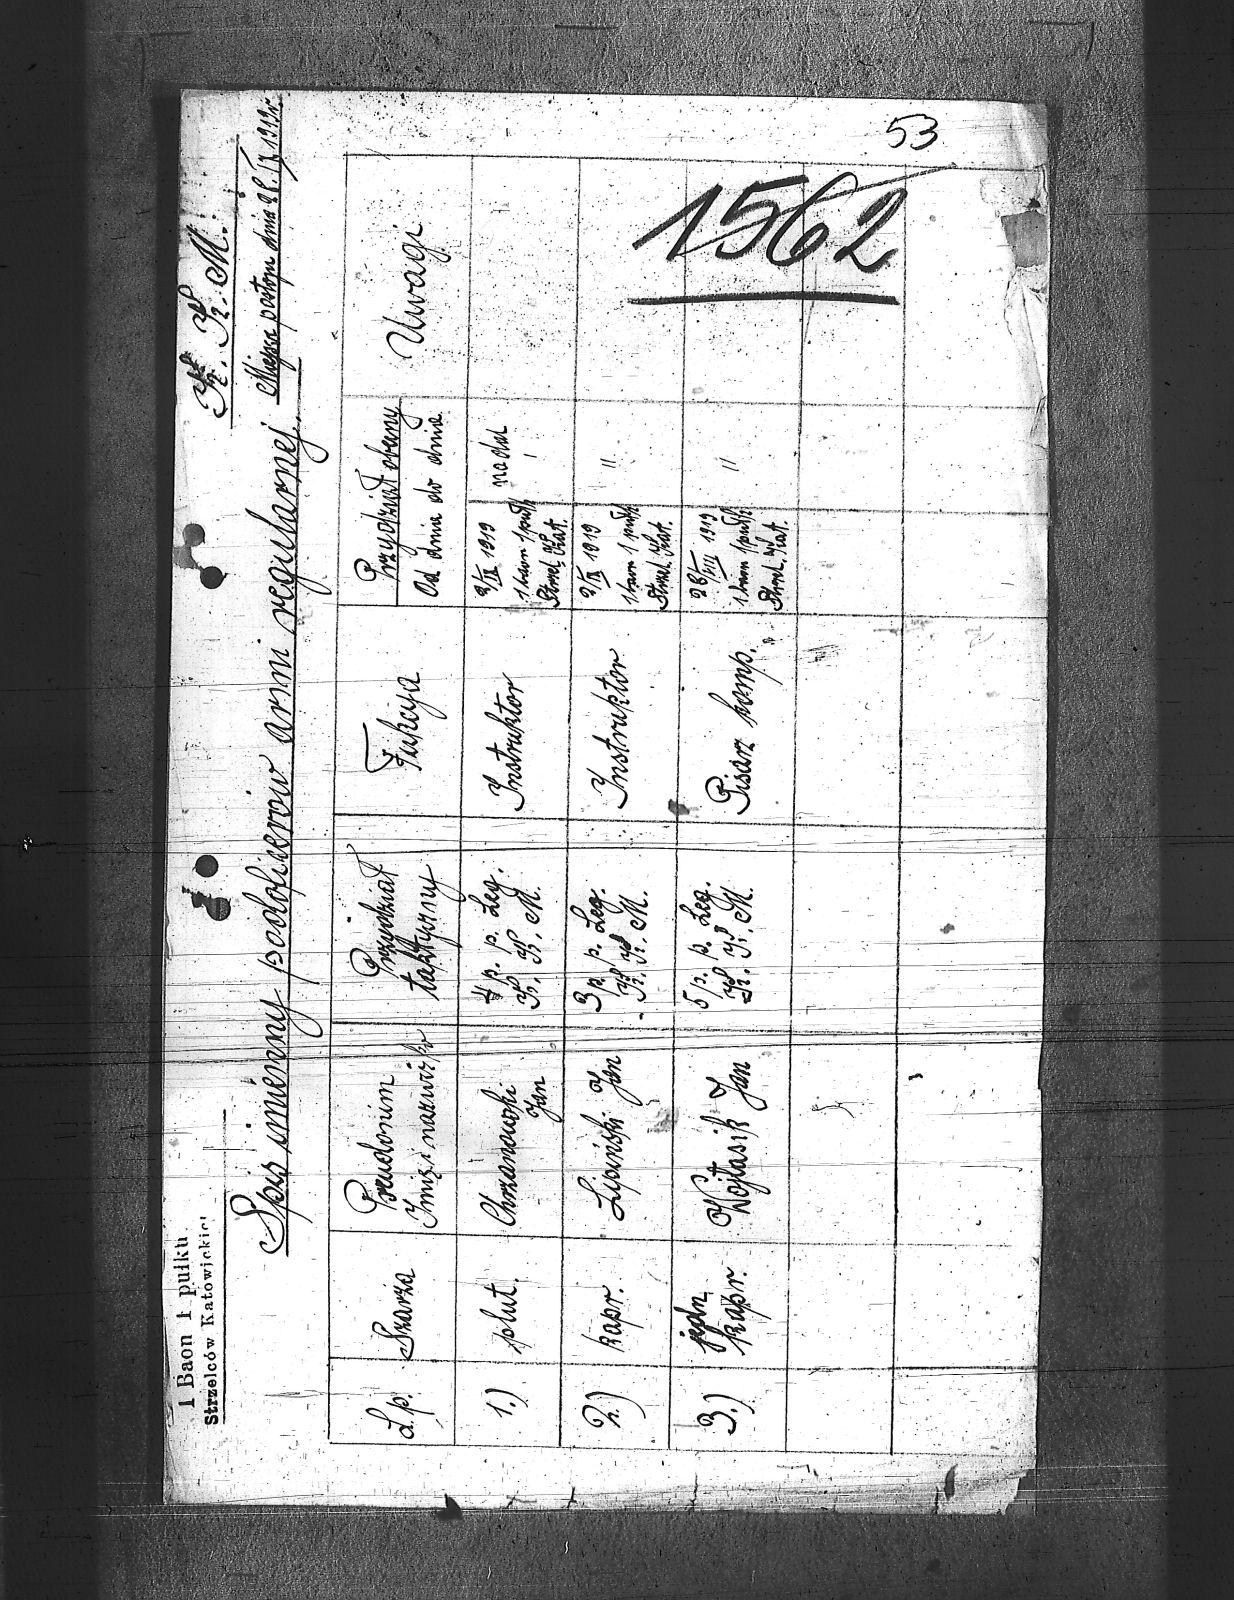 53
1562
1 Baon 1 pułku
Strzelców Katowickich
K. K. M.
Miejsce postoju dnia 1919r.
Spis imienny podoficerów armi regularnej.
L.p. Szarża Pseudonim Przydział Fukcya Przydział obecny Uwagi
Imię i nazwisko taktyczny Od dnia do dnia
1.) plut. Chrzanowski 4 p. p. Leg. Instruktor 2/IX 1919 nadal
Jan K. K. M. 1 baon 1 pułk
Strzel. Kat.
2.) kapr. Lipiński Jan 3 p. p. Leg. Instruktor 2/IX 1919 "
K. K. M. 1 baon 1 pułk
Strzel. Kat.
3.) kapr. Wojtasik Jan 5 p. p. Leg. Pisarz komp. 28/VIII 1919 "
K. K. M. 1 baon 1 pułk
Strzel. Kat.